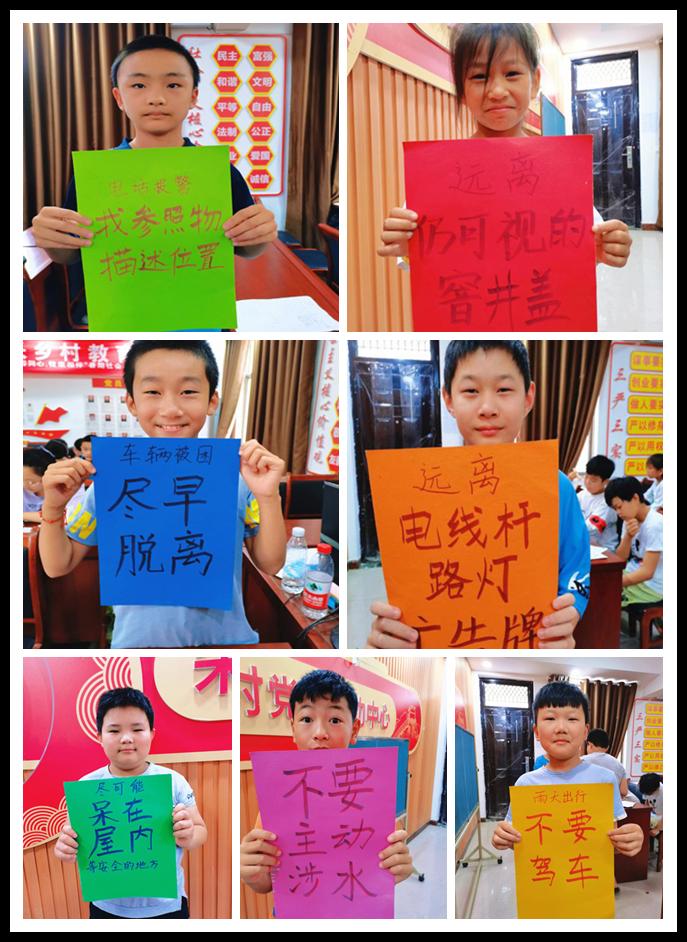 民主 富强
和谐 文明
平等 自由
法制 公正
爱国
诚信
电话报警
找参照物
描述位置
远离
仍可视的
窨井盖
乡村教育
车辆被困
尽早
脱离
主义核心价值观
远离
电线杆
路灯
广告牌
三严三实
谋事要
创业要
做人要
严以修
严以用
严以
村党
动中心
尽可能
呆在
屋内
等安全的地方
不要
主动
涉水
雨天出行
不要
驾车
三严三实